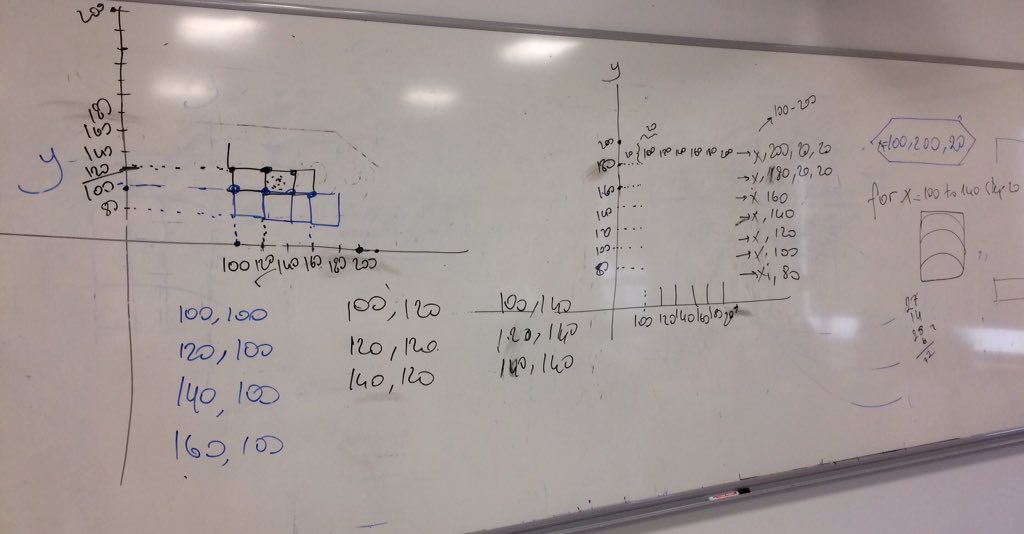 200
180
160
140
120
100
80
y
100 120 140 160 180 200
100,100
120,100
140,100
160,100
100,120
120,120
140,120
100,140
120,140
140,140
y
100-200
20
200
180
100
120
100
80
→x, 200, 20, 20
→x, 180, 20, 20
→x 160
→x, 140
→x, 120
→x, 100
→x, 80
100 120 140 160 180 200
=100,200,20
for x=100 to 140